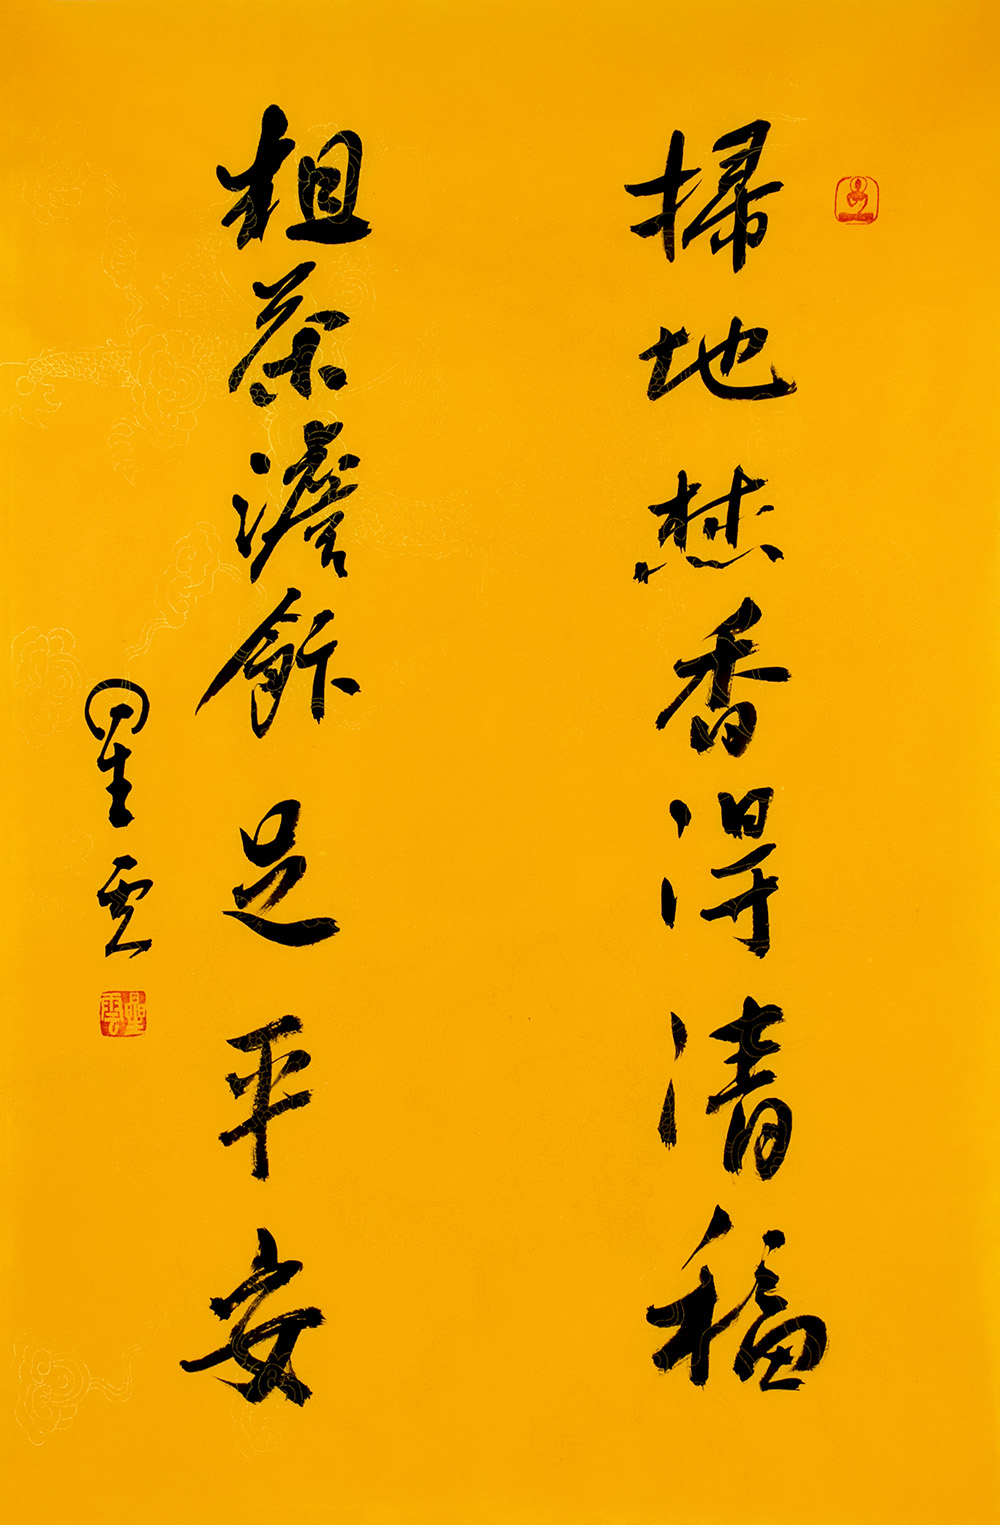 掃地焚香得清福
粗茶澹飯足平安
星雲
星雲